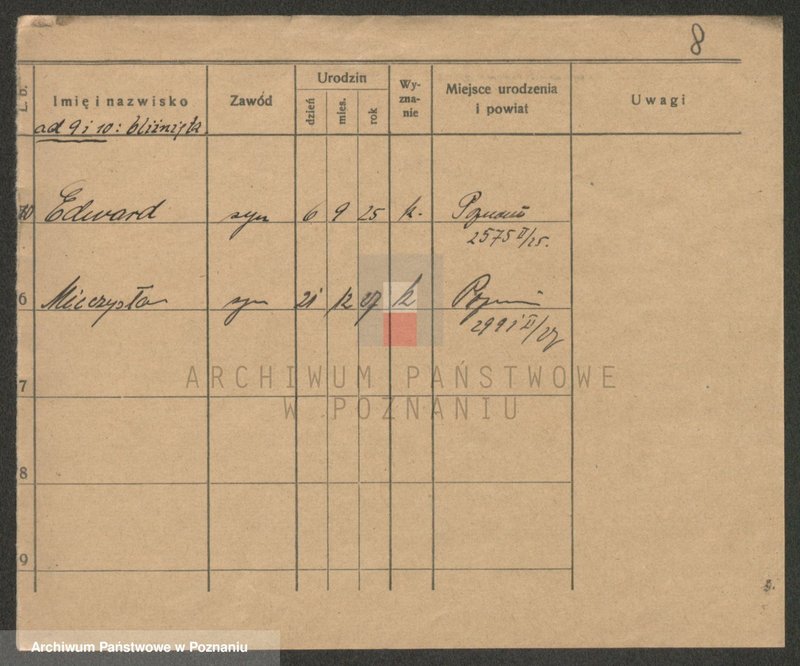 8
L. b.
Imię i nazwisko
Zawód
Urodzin
dzień
mies.
rok
Wy-
zna-
nie
Miejsce urodzenia
i powiat
Uwagi
ad 9 i 10: bliźnięta
10 Edward syn 6 9 25 k. Poznań
2575 II/25.
6 Mieczysław syn 21 12 27 k Poznań
2991 II/27
7
ARCHIWUM PAŃSTWOWE
W POZNANIU
8
9
Archiwum Państwowe w Poznaniu